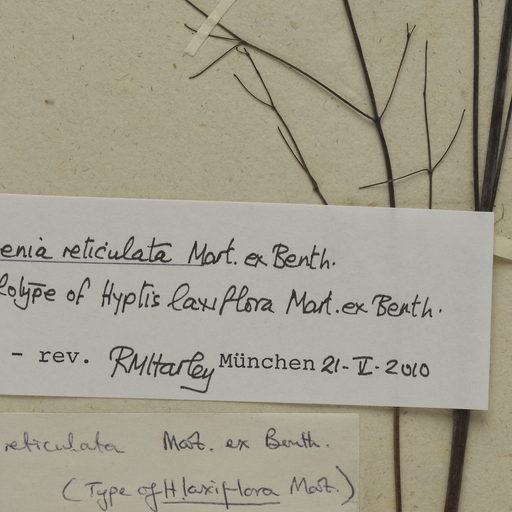 enia reticulata Mart. ex Benth.
lotype of Hyptis laxiflora Mart. ex Benth.
- rev. RMHarley München 21-V-2010
reticulata Mart. ex Benth.
(Type of H. laxiflora Mart.)